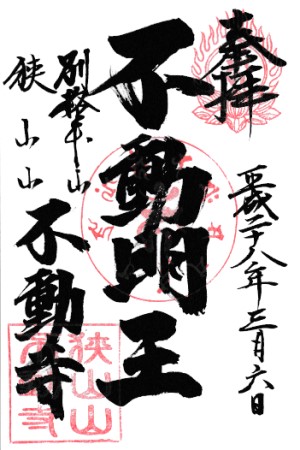 奉拝
平成二十八年三月六日
不動明王
別格本山
狭山山
不動寺
狭山山
不動寺